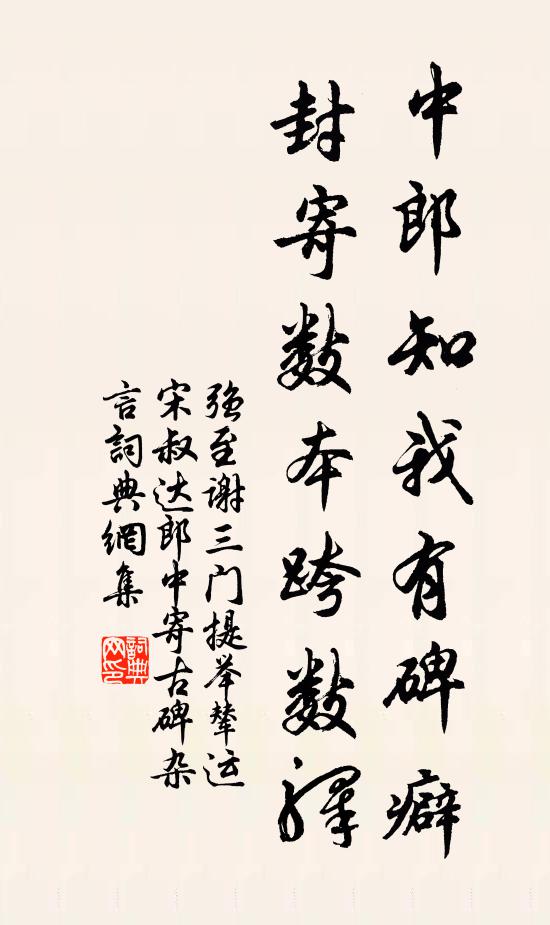 中郎知我有碑癖
封寄数本跨数驿
强至谢三门提举辇运
宋叔达郎中寄古碑杂
言詞典網集
詞典
网印